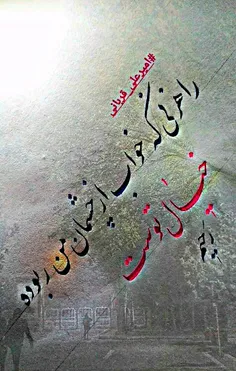 #امیرعلی_قربانی
راهزنی که خواب از چشمان من ربوده
خیال توست